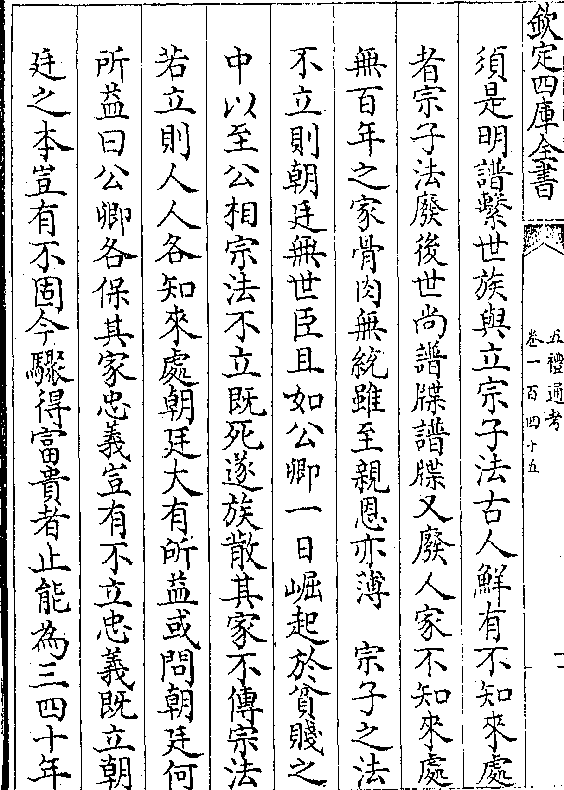 欽定四庫全書
五禮通考
卷一百四十五
須是明譜繫世族與立宗子法古人鮮有不知來處
者宗子法廢後世尚譜牒譜牒又廢人家不知來處
無百年之家骨肉無統雖至親恩亦薄　宗子之法
不立則朝廷無世臣且如公卿一日崛起於貧賤之
中以至公相宗法不立既死遂族散其家不傳宗法
若立則人人各知來處朝廷大有所益或問朝廷何
所益曰公卿各保其家忠義豈有不立忠義既立朝
廷之本豈有不固今驟得富貴者止能為三四十年